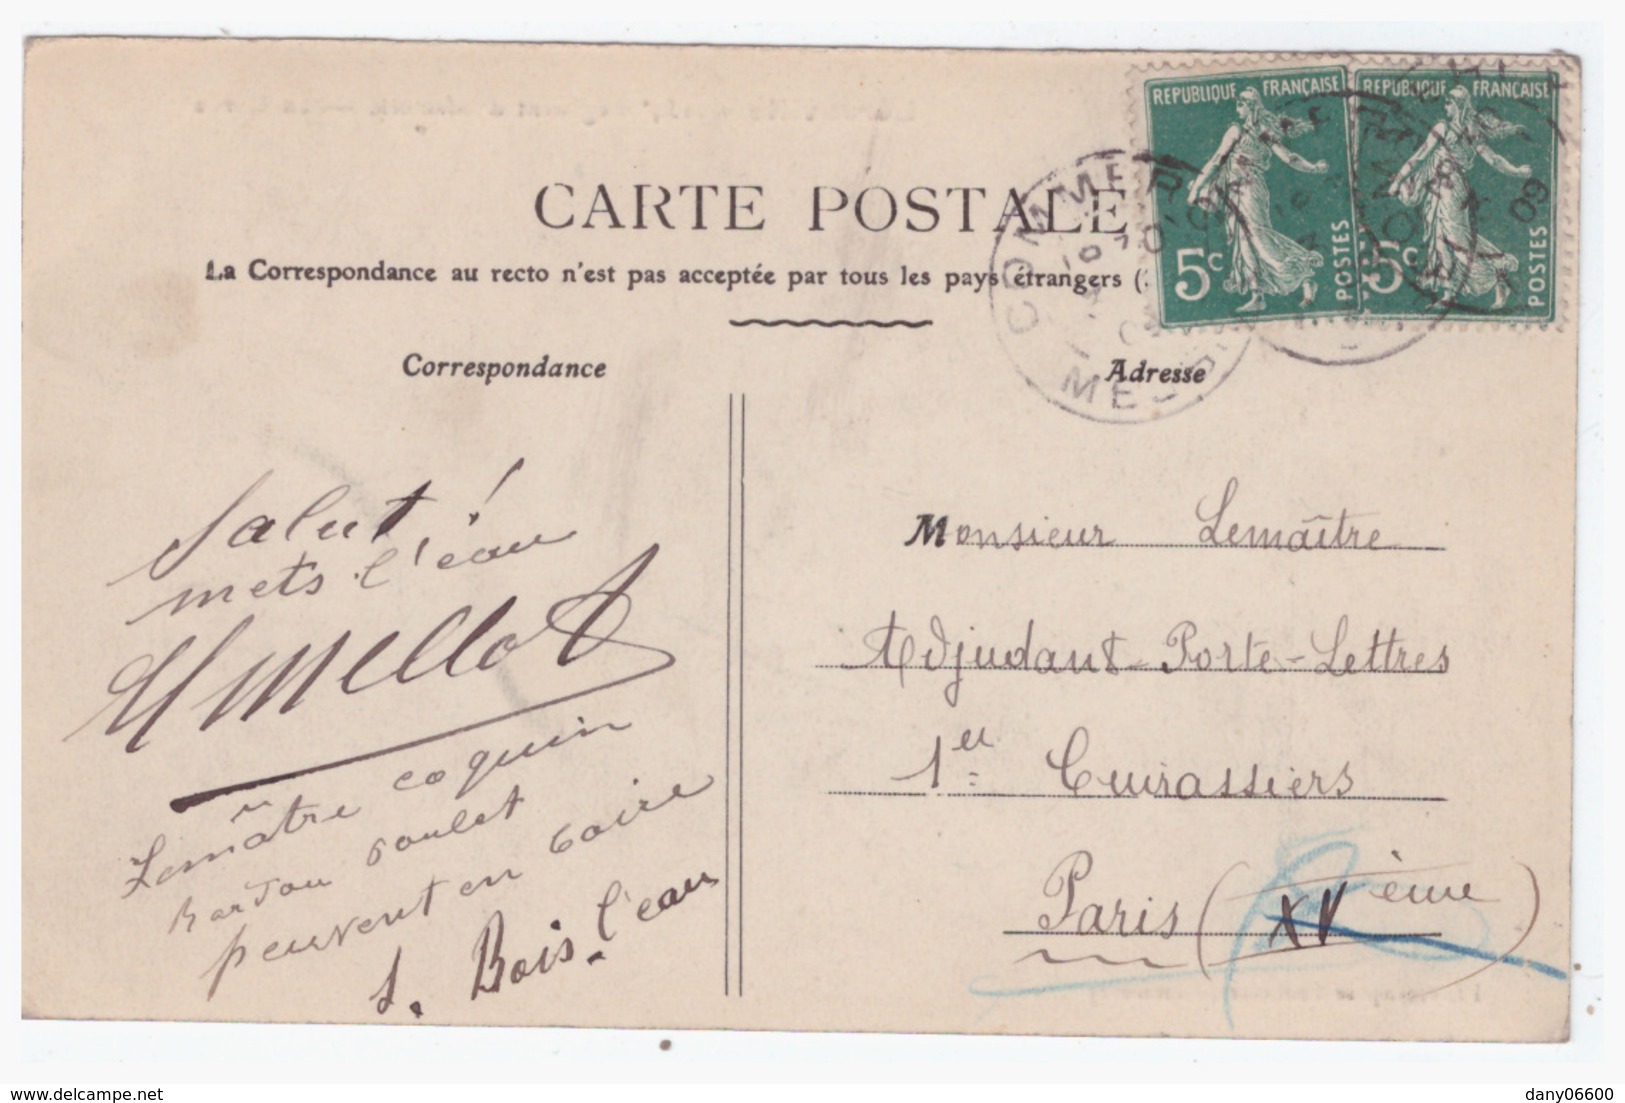 CARTE POSTALE
La Correspondance au recto n'est pas acceptée par tous les pays étrangers (
REPUBLIQUE FRANÇAISE
5c POSTES
REPUBLIQUE FRANÇAISE
5c POSTES
COMMERCY
MEUSE
09
Correspondance
Adresse
Salut !
mets l'eau
Mellot
Lemâitre coquin
peuvent en boire
Bois l'eau
Monsieur Lemaître
Adjudant-Porte-Lettres
1er Cuirassiers
Paris (XVème)
delcampe.net
dany06600